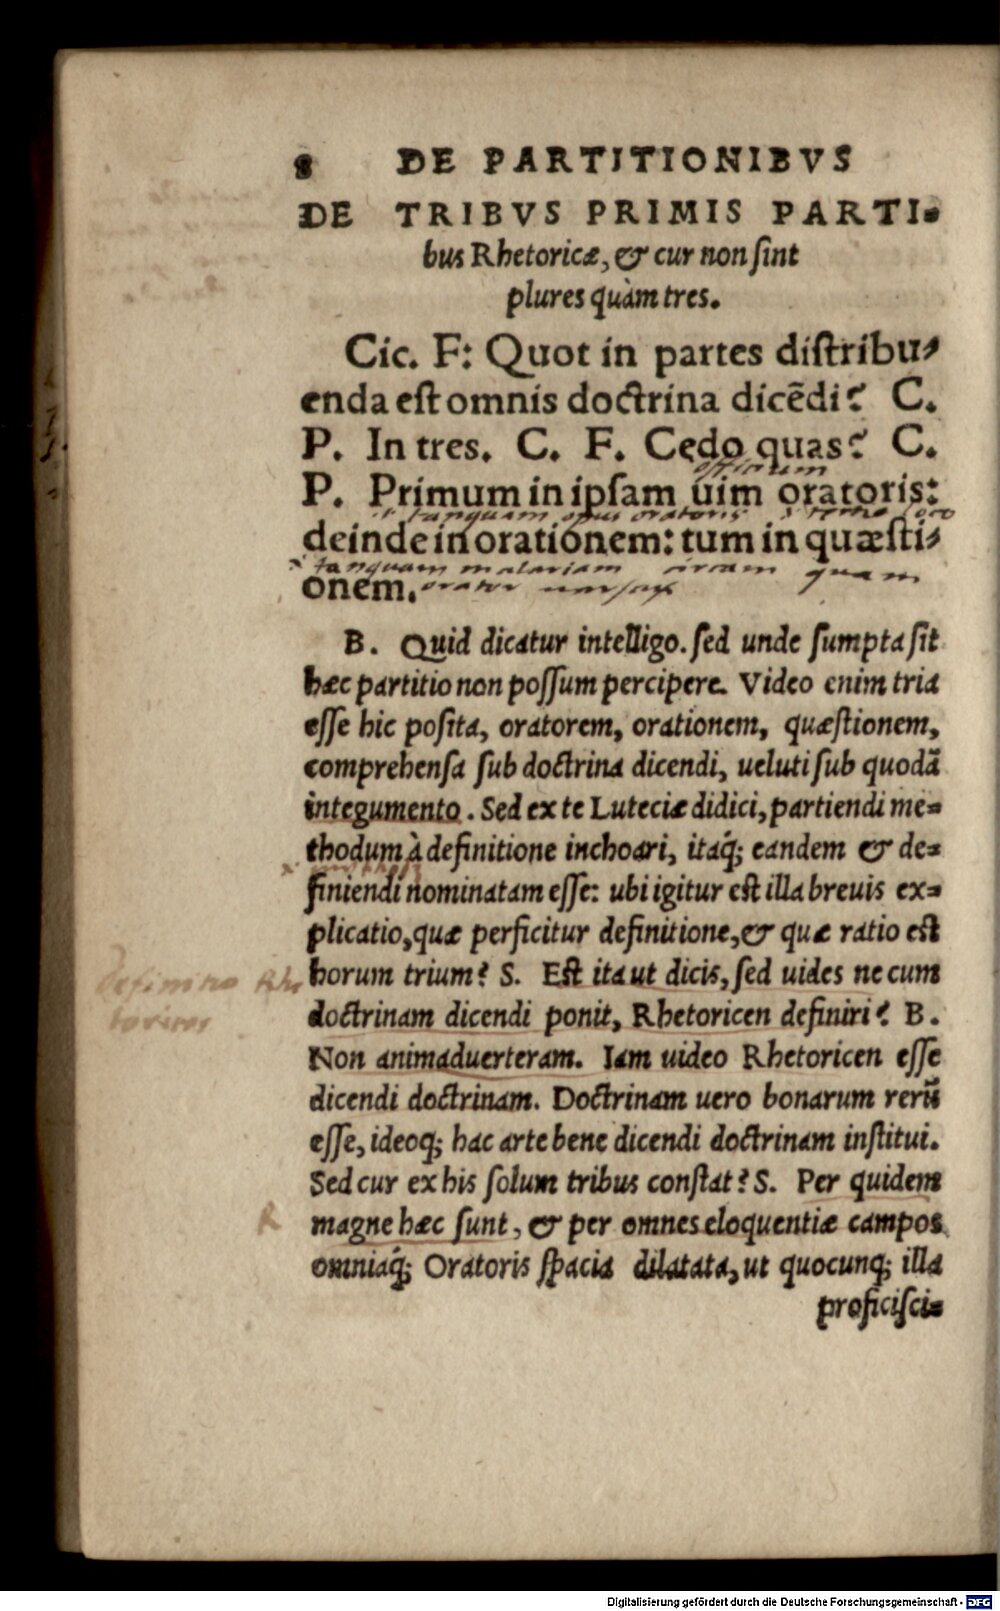 8 DE PARTITIONIBVS
DE TRIBVS PRIMIS PARTI-
bus Rhetoricæ, & cur non sint
plures quàm tres.
Cic. F: Quot in partes distribu-
enda est omnis doctrina dicẽdi? C.
P. In tres. C. F. Cędo quas? C.
officium
P. Primum in ipsam uim oratoris:
tanquam opus oratoris tertio loco
deinde in orationem: tum in quæsti-
tanquam materiam circam quam
onem. orator uersatur
B. Quid dicatur intelligo. sed unde sumpta sit
hæc partitio non possum percipere. Video enim tria
esse hic posita, oratorem, orationem, quæstionem,
comprehensa sub doctrina dicendi, ueluti sub quodã
integumento. Sed ex te Luteciæ didici, partiendi me-
thodum à definitione inchoari, itaq́; eandem & de-
finiendi nominatam esse: ubi igitur est illa breuis ex-
plicatio, quæ perficitur definitione, & quæ ratio est
horum trium? S. Est ita ut dicis, sed uides ne cum
Definitio Rhe
torices
doctrinam dicendi ponit, Rhetoricen definiri? B.
Non animaduerteram. Iam uideo Rhetoricen esse
dicendi doctrinam. Doctrinam uero bonarum rerũ
esse, ideoq; hac arte bene dicendi doctrinam institui.
Sed cur ex his solum tribus constat? S. Per quidem
R
magne hæc sunt, & per omnes eloquentiæ campos
omniaq́; Oratoris spacia dilatata, ut quocunq; illa
proficisci-
Digitalisierung gefördert durch die Deutsche Forschungsgemeinschaft - DFG